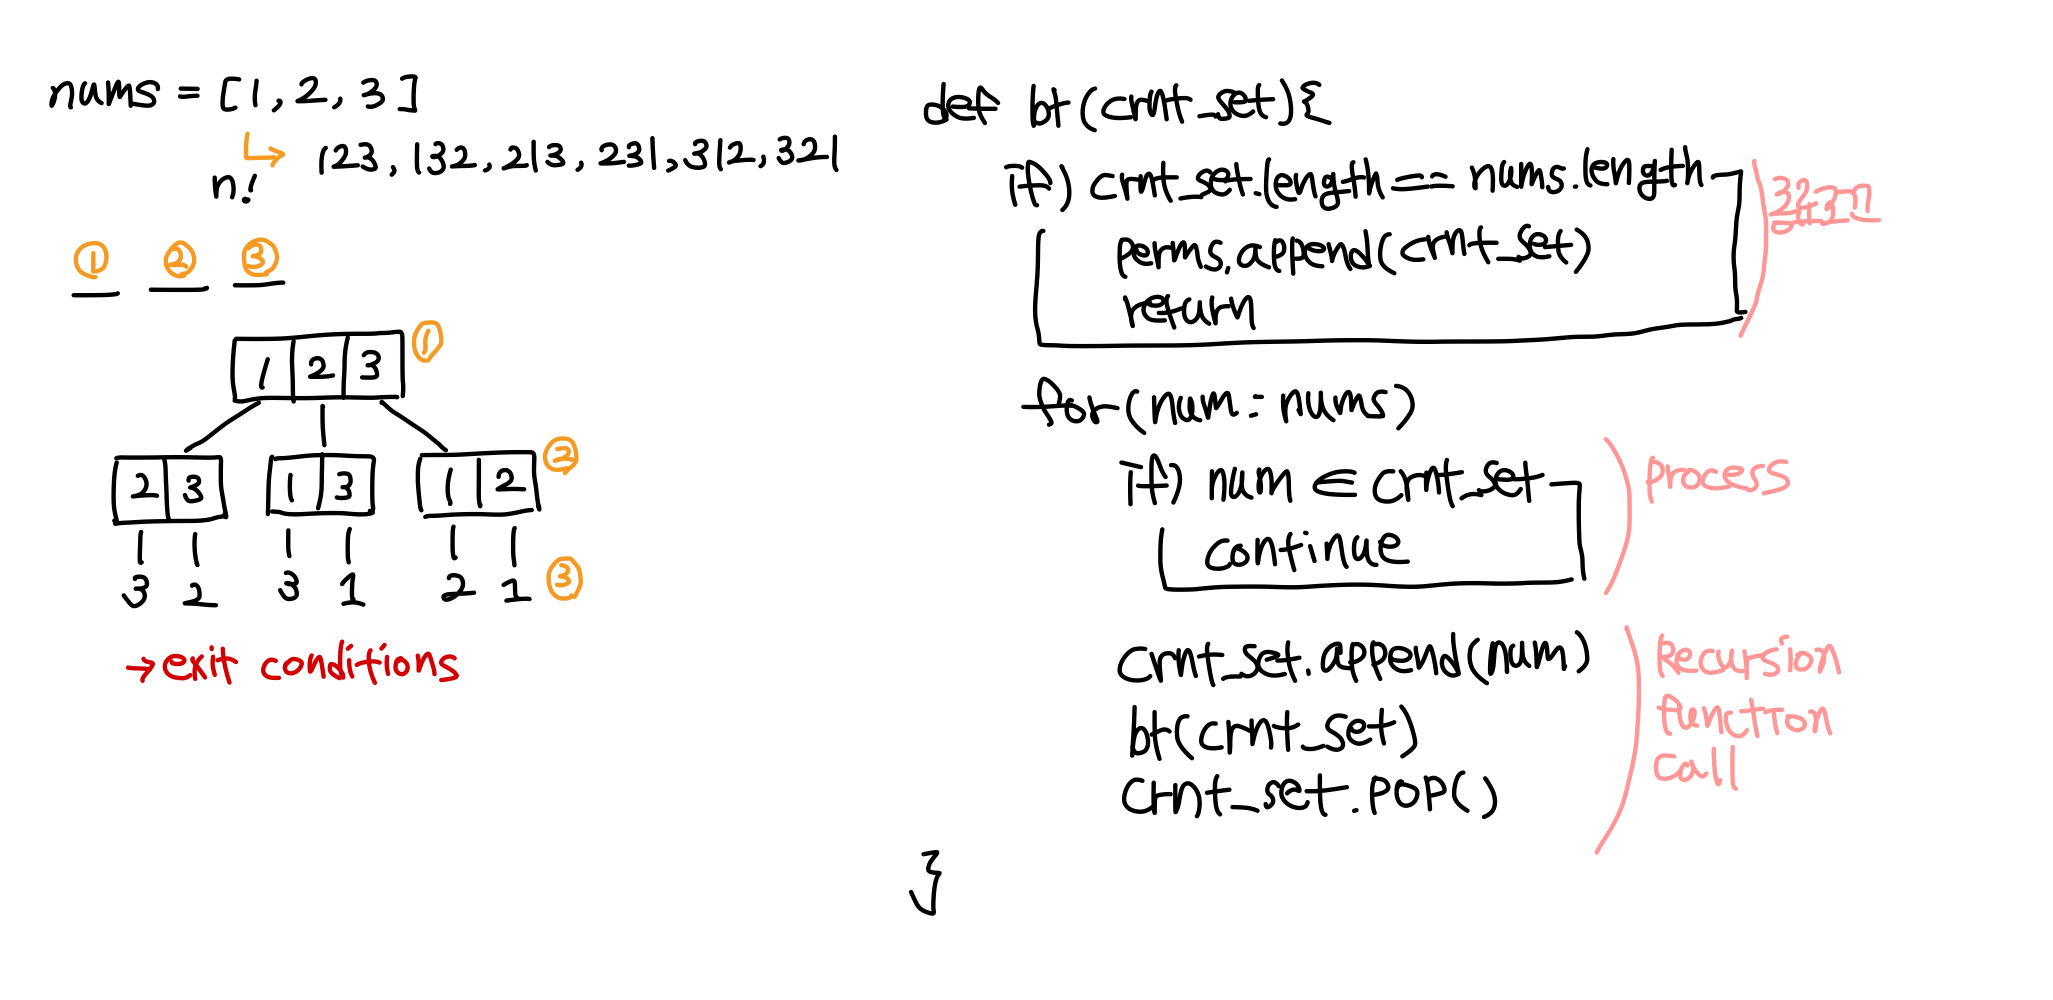 nums = [1, 2, 3]
n!
123, 132, 213, 231, 312, 321
① ② ③
1 2 3 ①
2 3 1 3 1 2 ②
3 2 3 1 2 1 ③
→ exit conditions
def bt(crnt_set){
if) crnt_set.length == nums.length
perms.append(crnt_set)
return
for(num : nums)
if) num ∈ crnt_set
continue
process
crnt_set.append(num)
bt(crnt_set)
crnt_set.pop()
Recursion
function
call
}